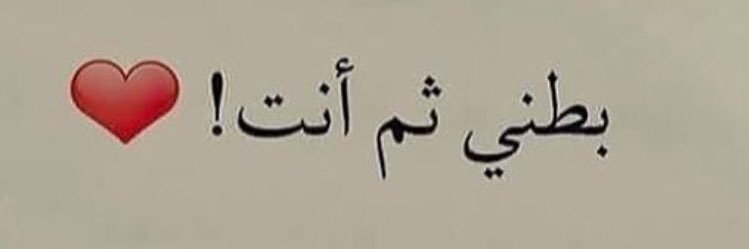 بطني ثم أنت! ❤️